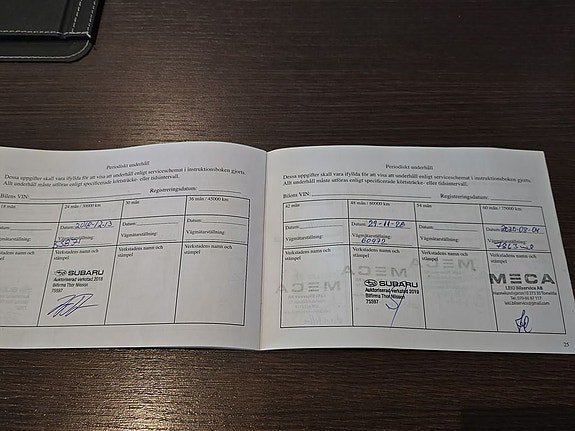 Periodiskt underhåll
Dessa uppgifter skall vara ifyllda för att visa att underhåll enligt serviceschemat i instruktionsboken gjorts.
Allt underhåll måste utföras enligt specificerade körsträcke- eller tidsintervall.
Bilens VIN:
Registreringsdatum:
18 mån
24 mån / 30000 km
30 mån
36 mån / 45000 km
Datum:
Datum:
Datum:
Vägmätarställning:
Vägmätarställning:
Vägmätarställning:
Verkstadens namn och stämpel
Verkstadens namn och stämpel
Verkstadens namn och stämpel
SUBARU
Auktoriserad verkstad 2019
Bilfirma Thor Nilsson
75597
Periodiskt underhåll
Dessa uppgifter skall vara ifyllda för att visa att underhåll enligt serviceschemat i instruktionsboken gjorts.
Allt underhåll måste utföras enligt specificerade körsträcke- eller tidsintervall.
Bilens VIN:
Registreringsdatum:
42 mån
48 mån / 60000 km
54 mån
60 mån / 75000 km
Datum:
Datum:
Datum:
Datum: 2020-08-04
Vägmätarställning:
Vägmätarställning:
Vägmätarställning:
Vägmätarställning:
60472
Verkstadens namn och stämpel
Verkstadens namn och stämpel
Verkstadens namn och stämpel
Verkstadens namn och stämpel
SUBARU
Auktoriserad verkstad 2019
Bilfirma Thor Nilsson
75597
MECA
LEIO Bilservice AB
25